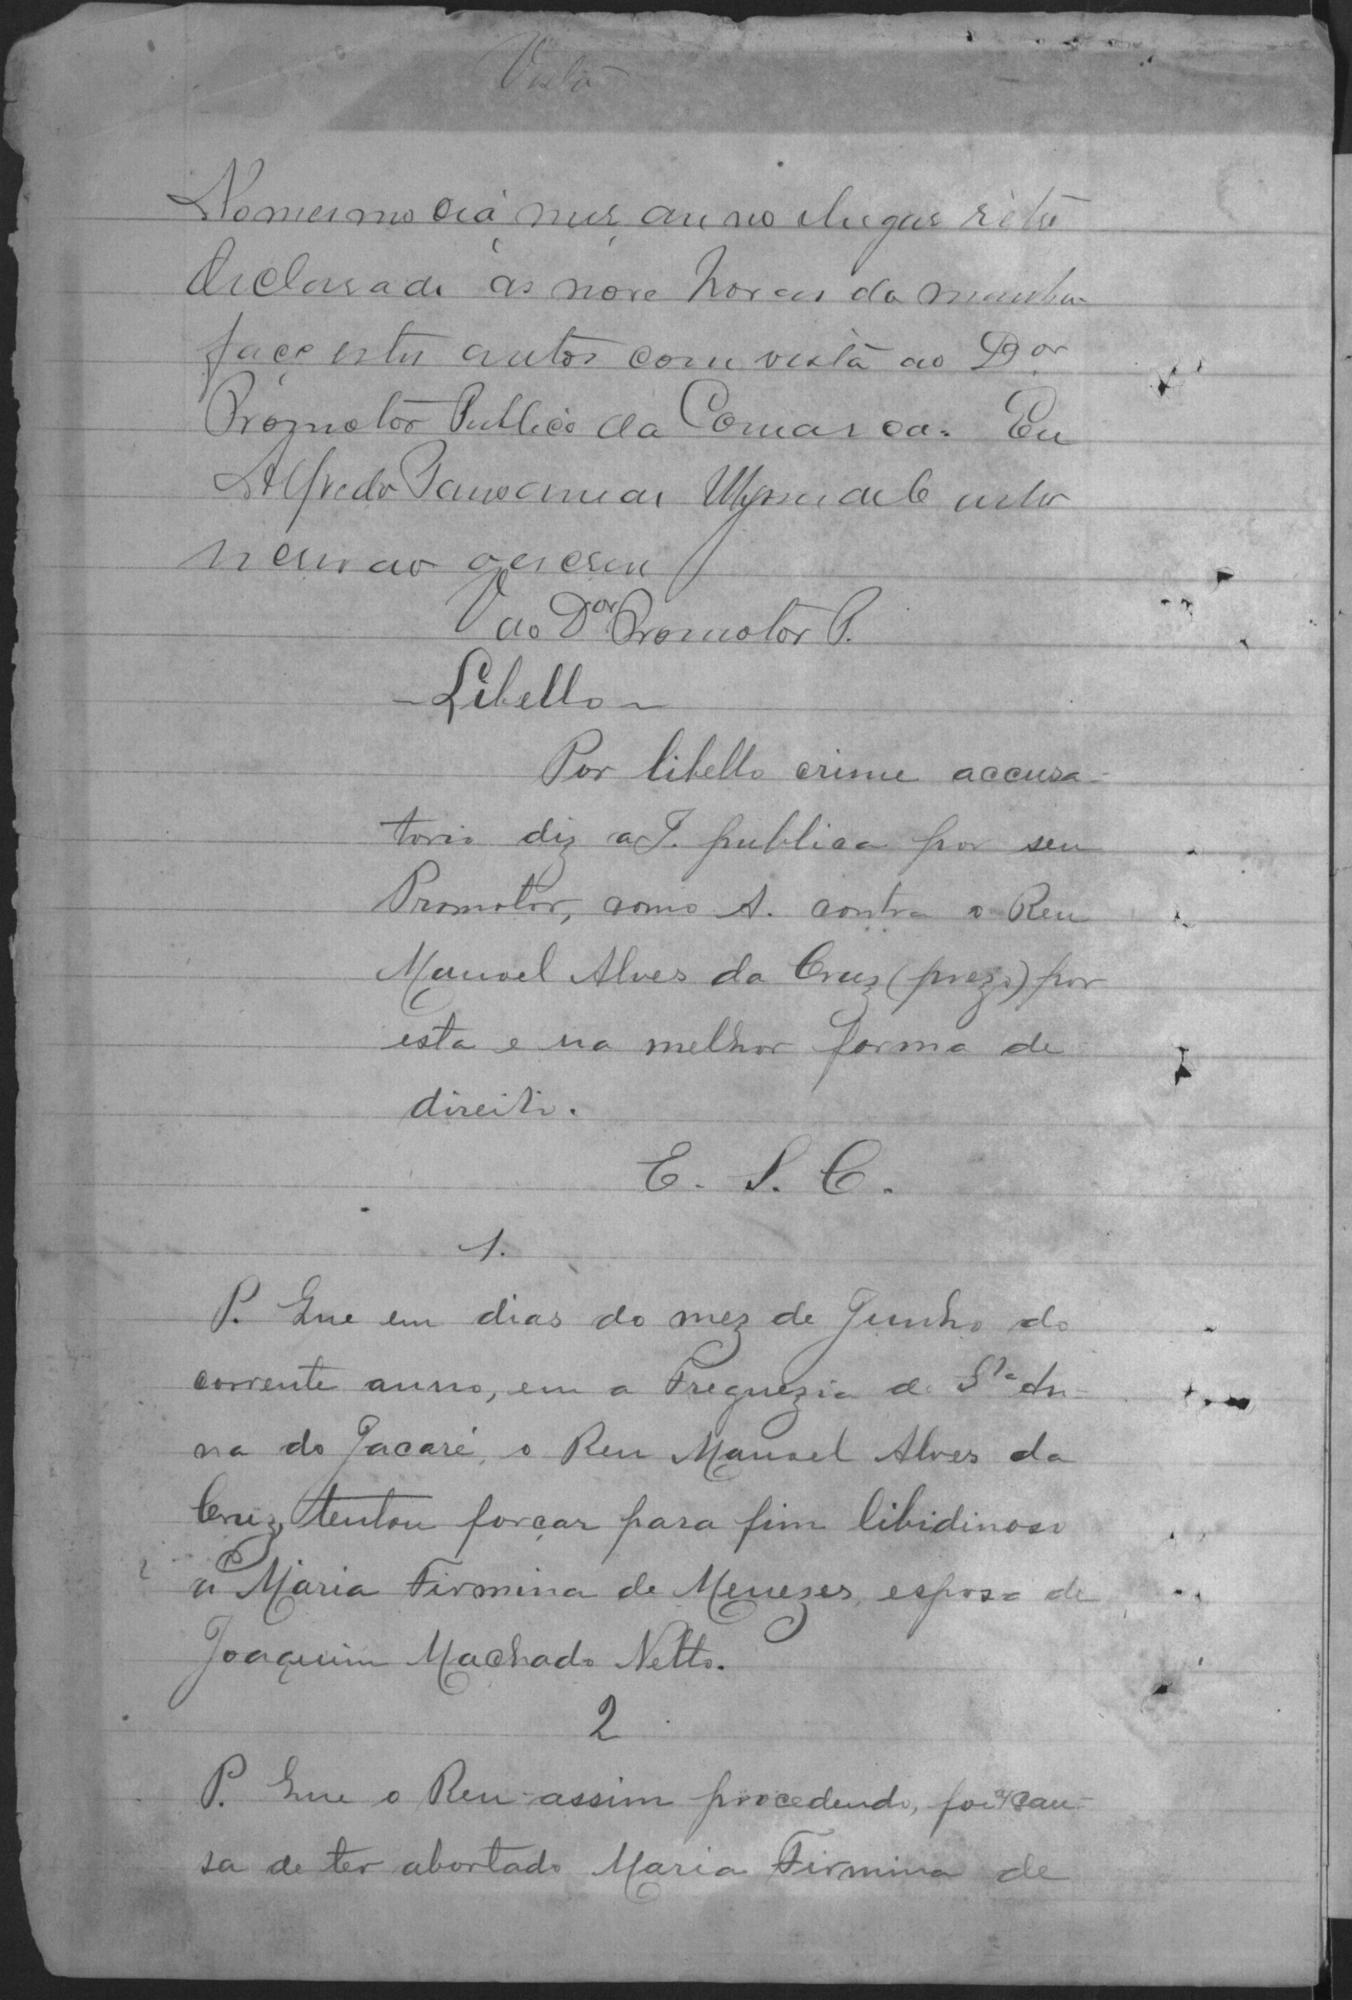 Vista
No mesmo dia mez anno e lugar rétro
declarado ás nove horas da manha
faço estes autos com vista ao Dor
Promotor Publico da Comarca. Eu
Alfredo
escrivão o escrevi
V ao Dor Promotor P.
- Libello -
Por libello crime accusa-
torio diz a J. publica por seu
Promotor, como A. contra o Reu
Manoel Alves da Cruz (prezo) por
esta e na melhor forma de
direito.
E. S. C.
1.
P. Que em dias do mez de Junho do
corrente anno, em a Freguezia de Sta An-
na do Jacaré, o Reu Manoel Alves da
Cruz, tentou forçar para fim libidinoso
a Maria Firmina de Menezes, esposa de
Joaquim Machado Netto.
2
P. Que o Reu assim procedendo, foi a cau-
sa de ter abortado Maria Firmina de